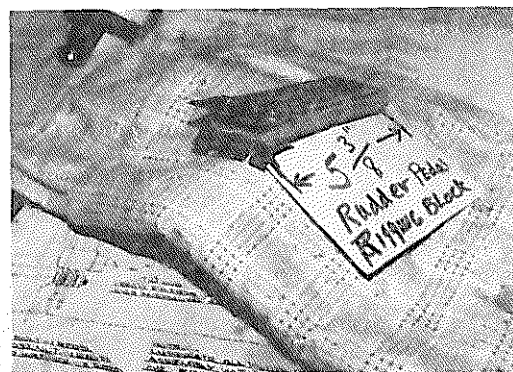 5 3/8"
Rudder Pedal
Rigging Block